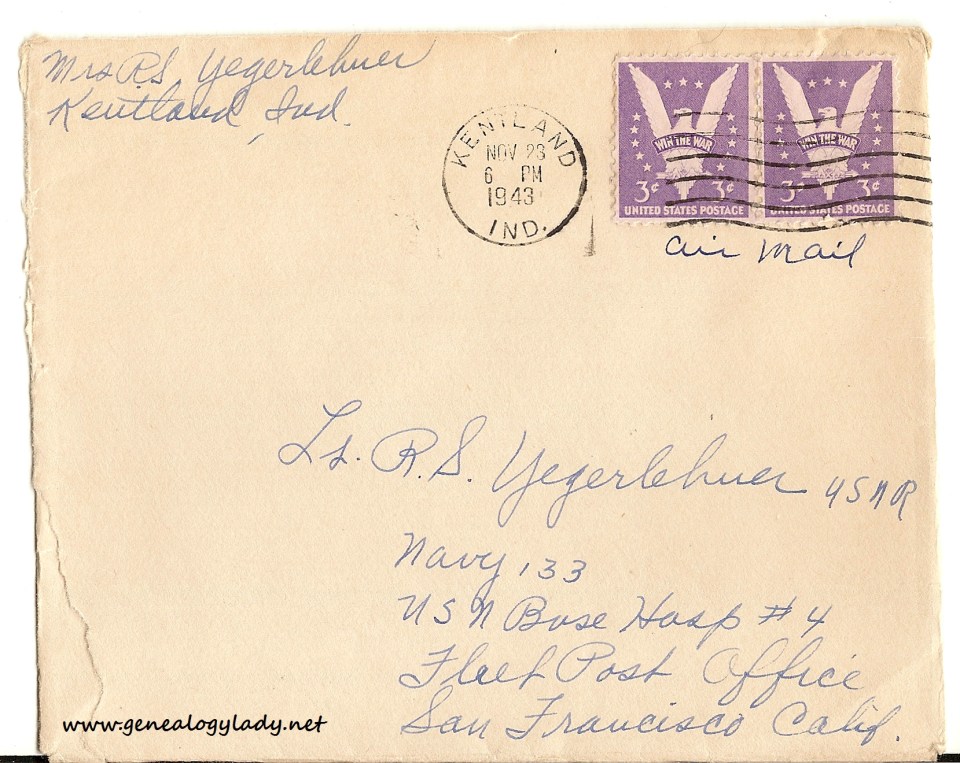 Mrs R.S. Yegerlehner
Kentland, Ind.
KENTLAND
NOV 23
6 PM
1943
IND.
WIN THE WAR
3¢ 3¢
UNITED STATES POSTAGE
WIN THE WAR
3¢ 3¢
UNITED STATES POSTAGE
Air Mail
Lt. R.S. Yegerlehner USNR
Navy 133
USN Base Hosp #4
Fleet Post Office
San Francisco Calif.
www.genealogylady.net